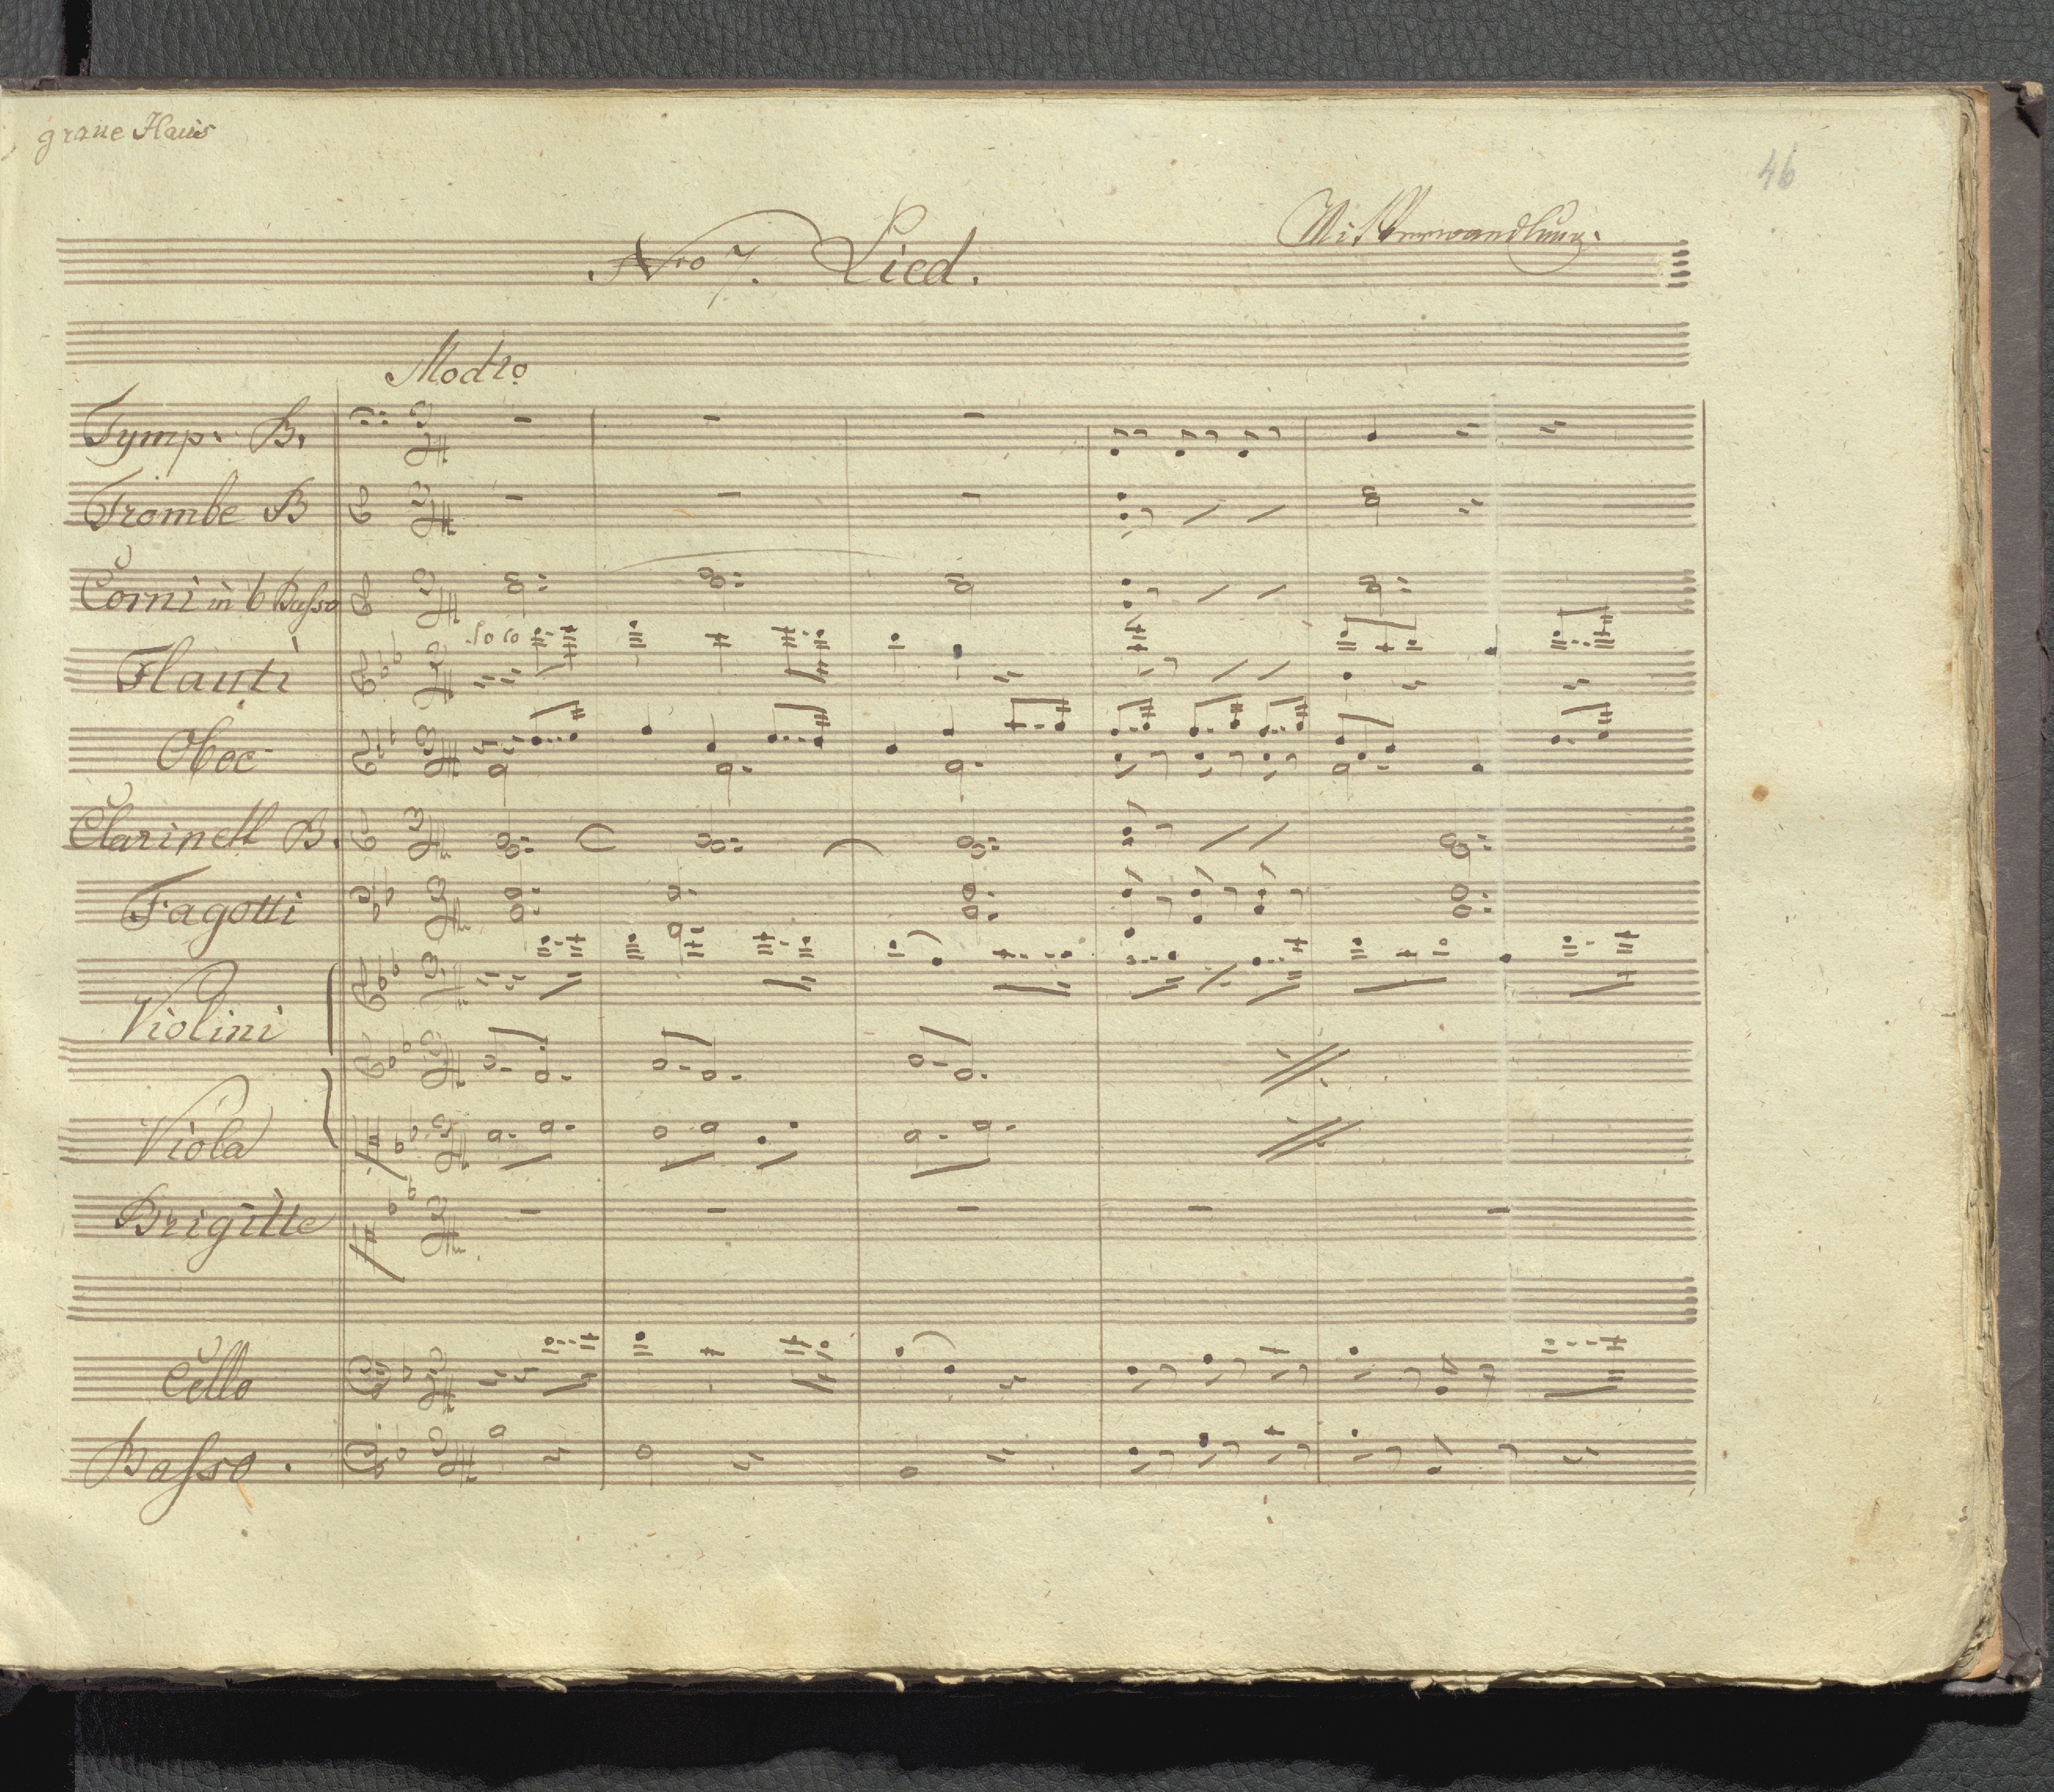 graue Haus
46
Nro 7. Lied.
Mit Verwandlung.
Modto
Tymp. B.
Trombe B
Corni in b Basso
Solo
Flauti
Oboe
Clarinett B.
Fagotti
Violini
Viola
Brigitte
Cello
Basso.